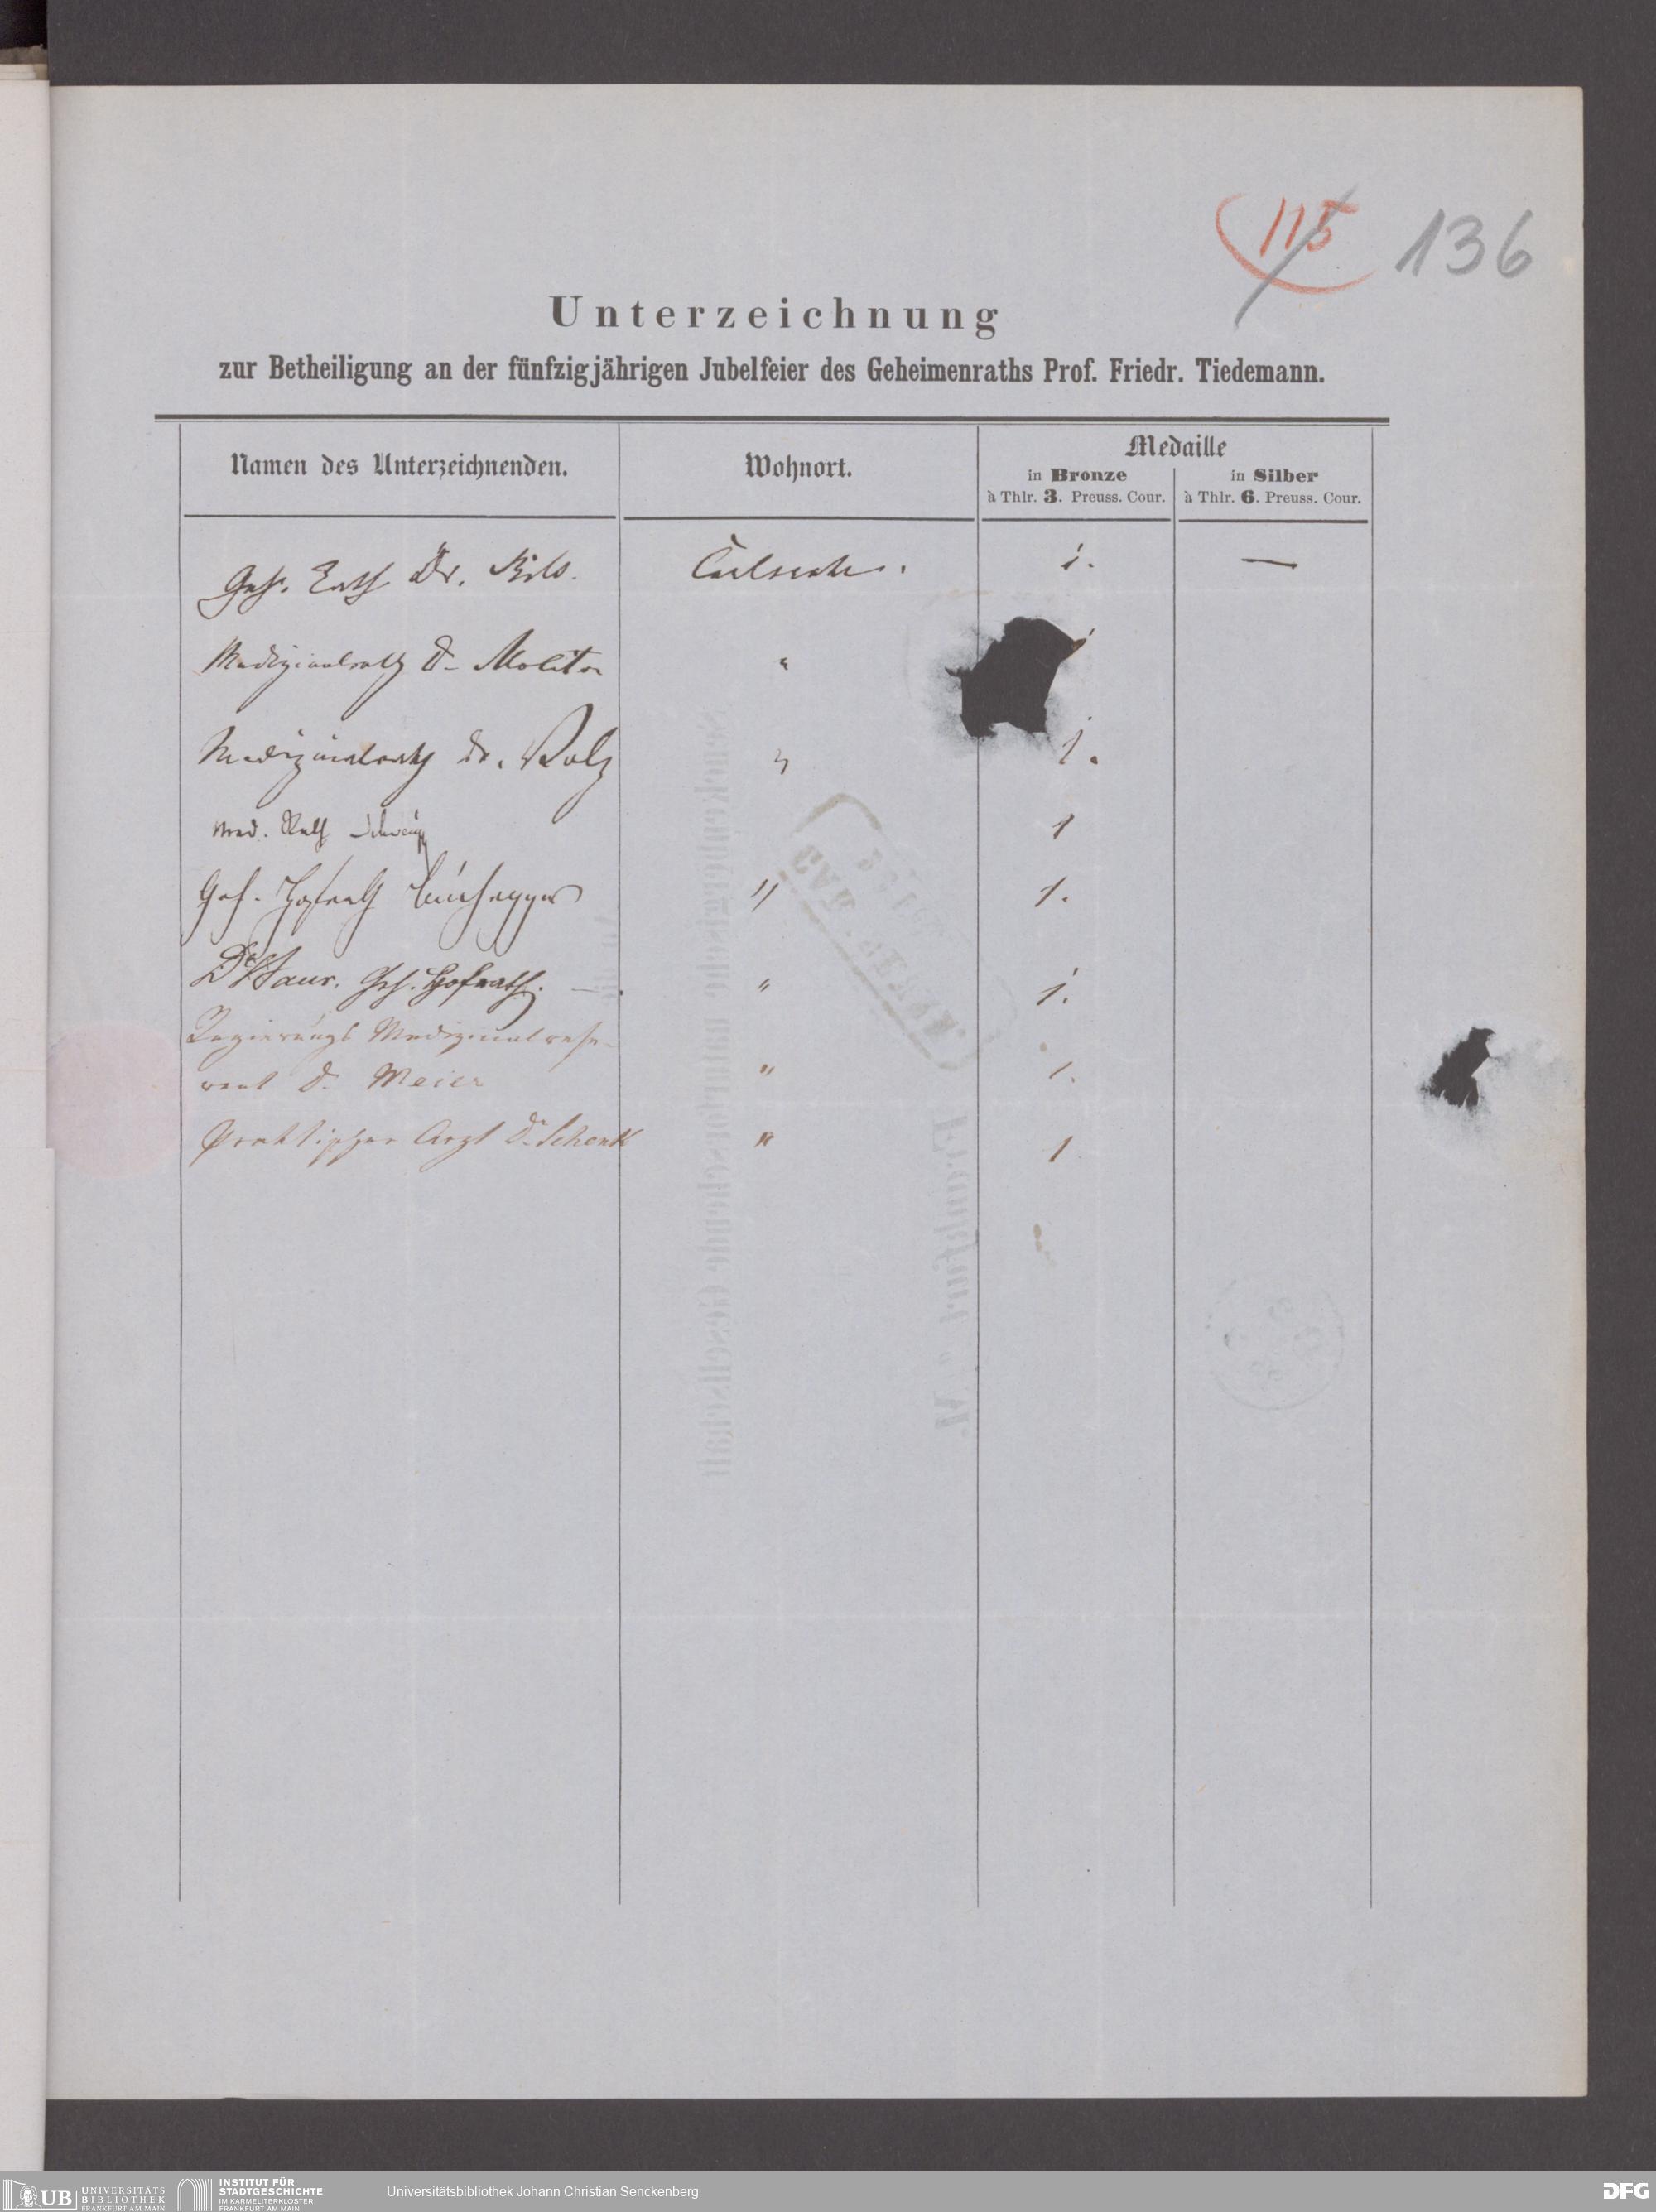 115 136
Unterzeichnung
zur Betheiligung an der fünfzigjährigen Jubelfeier des Geheimenraths Prof. Friedr. Tiedemann.
Namen des Unterzeichnenden. Wohnort. Medaille
in Bronze à Thlr. 3. Preuss. Cour. in Silber à Thlr. 6. Preuss. Cour.
Geh. Rath Dr. Carlsruhe. 1. —
Medizinalrath Dr Molitor "
Medizinalrath Dr. Volz " 1.
Med. Rath 1
Geh. Hofrath Buchegger " 1.
Dr Geh. Hofrath. — . " 1.
Regierungs Medizinalrefe-
rent Dr. Meier " 1.
Praktischer Arzt Dr. Schenk " 1
Senckenbergische naturforschende Gesellschaft
Frankfurt a/M.
UB UNIVERSITÄTS
BIBLIOTHEK
FRANKFURT AM MAIN
INSTITUT FÜR
STADTGESCHICHTE
IM KARMELITERKLOSTER
FRANKFURT AM MAIN
Universitätsbibliothek Johann Christian Senckenberg
DFG